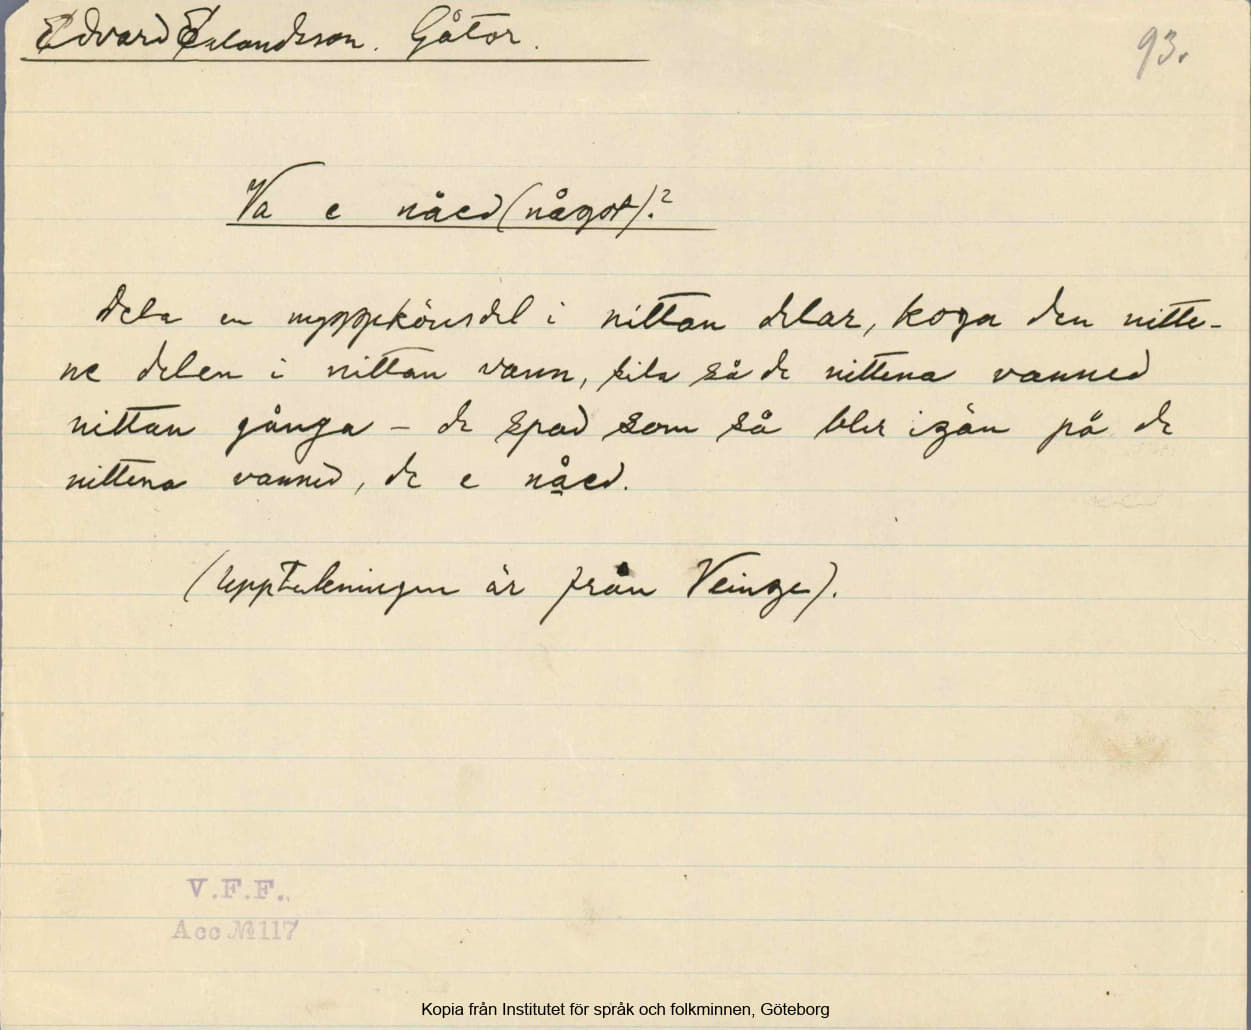 Edvard Erlandsson. Gåtor.
93.
Va e nåed (något).?
Dela en myggekörsdel i nittan delar, koga den nitte-
ne delen i nittan vann, sila så de nittena vanned
nittan gånga – de spad som så bler igän på de
nittena vanned, de e nåed.
(Uppteckningen är från Veinge).
V.F.F.
Acc №117
Kopia från Institutet för språk och folkminnen, Göteborg